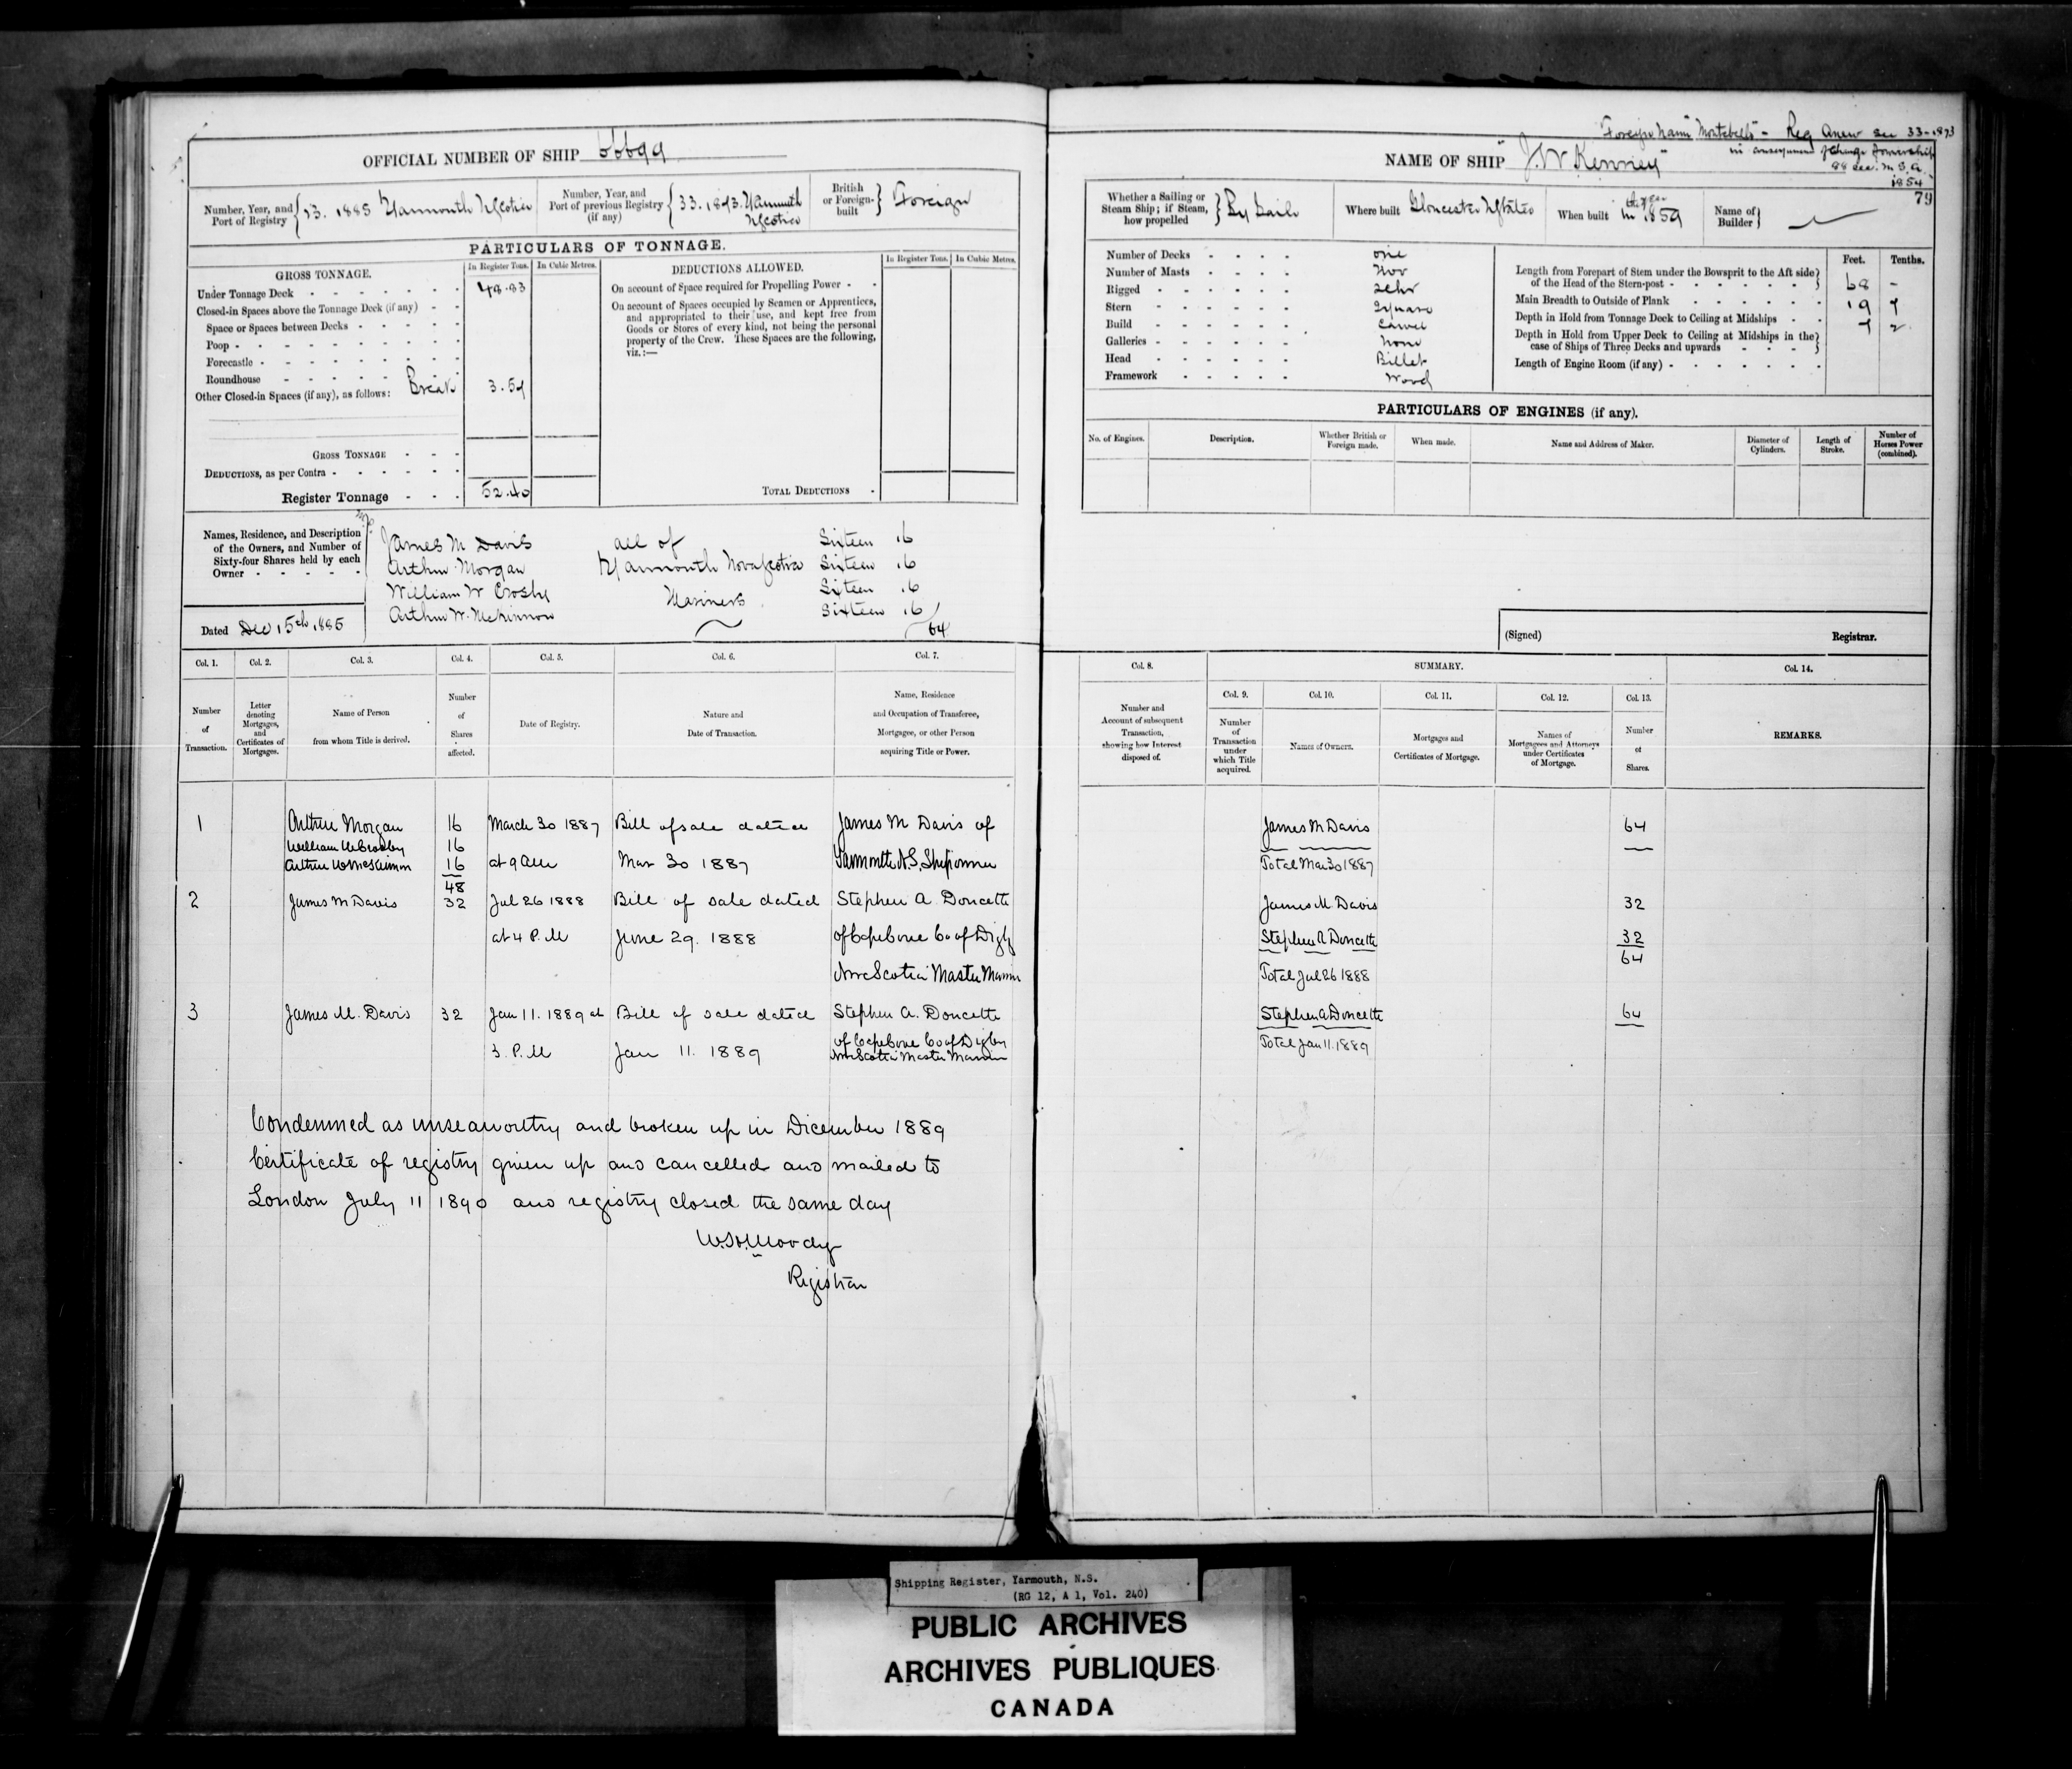 OFFICIAL NUMBER OF SHIP 66699
Number, Year, and Port of Registry { 23. 1885 Yarmouth NScotia
Number, Year, and Port of previous Registry (if any) { 33. 1873. Yarmouth NScotia
British or Foreign-built } Foreign
PARTICULARS OF TONNAGE.
GROSS TONNAGE.
In Register Tons. In Cubic Metres.
Under Tonnage Deck 48.83
Closed-in Spaces above the Tonnage Deck (if any)
Space or Spaces between Decks
Poop
Forecastle
Roundhouse
Other Closed-in Spaces (if any), as follows: Break 3.57
GROSS TONNAGE
DEDUCTIONS, as per Contra
Register Tonnage 52.40
DEDUCTIONS ALLOWED.
In Register Tons. In Cubic Metres.
On account of Space required for Propelling Power
On account of Spaces occupied by Seamen or Apprentices,
and appropriated to their use, and kept free from
Goods or Stores of every kind, not being the personal
property of the Crew. These Spaces are the following,
viz.:—
TOTAL DEDUCTIONS
Names, Residence, and Description
of the Owners, and Number of
Sixty-four Shares held by each
Owner
James M Davis all of Sixteen 16
Arthur Morgan Yarmouth Nova Scotia Sixteen 16
William W Crosby Mariners Sixteen 16
Arthur W. McKinnon Sixteen 16
64
Dated Dec 15th 1885
Col. 1. Col. 2. Col. 3. Col. 4. Col. 5. Col. 6. Col. 7.
Number of Transaction.
Letter denoting Mortgages, and Certificates of Mortgages.
Name of Person from whom Title is derived.
Number of Shares affected.
Date of Registry.
Nature and Date of Transaction.
Name, Residence and Occupation of Transferee, Mortgagee, or other Person acquiring Title or Power.
1 Arthur Morgan 16 March 30 1887 Bill of sale dated James M Davis of
William W Crosby 16
Arthur W McKinnon 16 at 9 am Mar 30 1887 Yarmouth N.S. Shipowner
48
2 James M Davis 32 Jul 26 1888 Bill of sale dated Stephen A. Doucette
at 4 P.M June 29. 1888 of Cape Cove Co of Digby
Nova Scotia Master Mariner
3 James M. Davis 32 Jan 11. 1889 at Bill of sale dated Stephen A. Doucette
3. P.M Jan 11. 1889 of Cape Cove Co of Digby
Nova Scotia Master Mariner
Condemned as unseaworthy and broken up in December 1889
Certificate of registry given up and cancelled and mailed to
London July 11 1890 and registry closed the same day
W.H. Moody
Registrar
"Foreign name" Montebello" - Reg Anew see 33-1873
in consequence of change of ownership
88 Sec. M.S.A.
1854
NAME OF SHIP "J.W Kenney"
79
Whether a Sailing or Steam Ship; if Steam, how propelled } By Sails
Where built Gloucester UStates
When built the year in 1859
Name of Builder }
Number of Decks one
Number of Masts Two
Rigged Schr
Stern Square
Build Carvel
Galleries None
Head Billet
Framework Wood
Feet. Tenths.
Length from Forepart of Stem under the Bowsprit to the Aft side
of the Head of the Stern-post } 68 -
Main Breadth to Outside of Plank 19 7
Depth in Hold from Tonnage Deck to Ceiling at Midships 7 2
Depth in Hold from Upper Deck to Ceiling at Midships in the
case of Ships of Three Decks and upwards }
Length of Engine Room (if any)
PARTICULARS OF ENGINES (if any).
No. of Engines. Description. Whether British or Foreign made. When made. Name and Address of Maker. Diameter of Cylinders. Length of Stroke. Number of Horses Power (combined).
(Signed) Registrar.
Col. 8. SUMMARY. Col. 14.
Col. 9. Col. 10. Col. 11. Col. 12. Col. 13.
Number and Account of subsequent Transaction, showing how Interest disposed of.
Number of Transaction under which Title acquired.
Names of Owners.
Mortgages and Certificates of Mortgage.
Names of Mortgagees and Attorneys under Certificates of Mortgage.
Number of Shares.
REMARKS.
James M Davis 64
Total Mar 30 1887
James M. Davis 32
Stephen A Doucette 32
64
Total Jul 26 1888
Stephen A Doucette 64
Total Jan 11. 1889
Shipping Register, Yarmouth, N.S.
(RG 12, A 1, Vol. 240)
PUBLIC ARCHIVES
ARCHIVES PUBLIQUES
CANADA